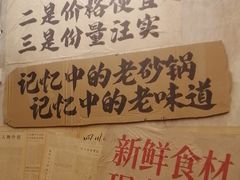 二是价格便宜
三是份量汪实
记忆中的老砂锅
记忆中的老味道
新鲜食材